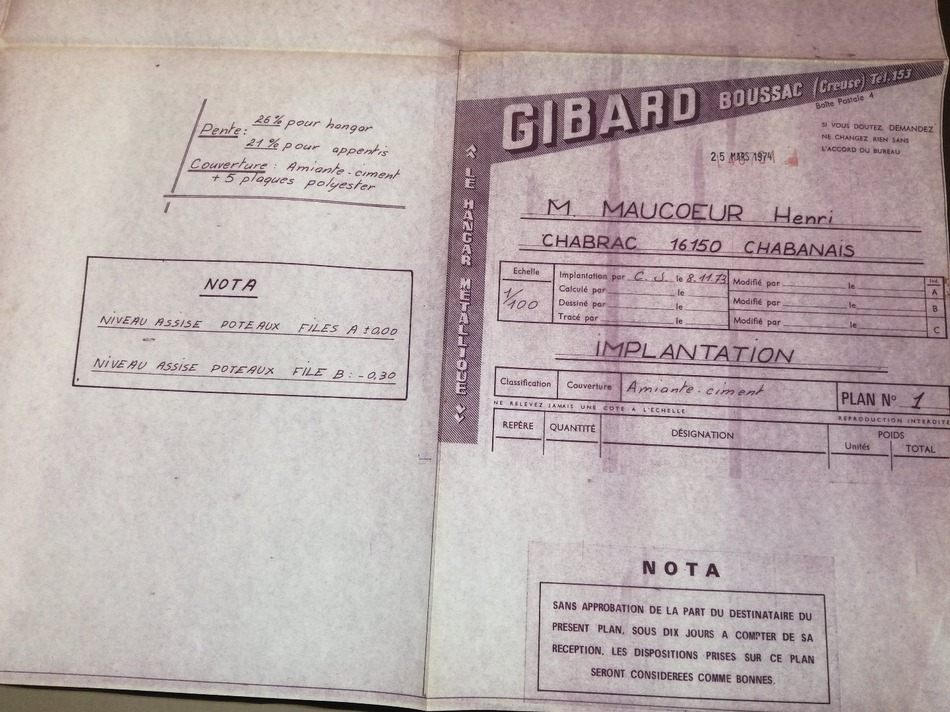 26% pour hangar
Pente:
21% pour appentis
Couverture: Amiante-ciment
+ 5 plaques polyester
NOTA
NIVEAU ASSISE POTEAUX FILES A ±0,00
NIVEAU ASSISE POTEAUX FILE B: -0,30
GIBARD BOUSSAC (Creuse) Tél. 153
Boîte Postale 4
SI VOUS DOUTEZ, DEMANDEZ
NE CHANGEZ RIEN SANS
L'ACCORD DU BUREAU
25 MARS 1974
LE HANGAR MÉTALLIQUE
M. MAUCOEUR Henri
CHABRAC 16150 CHABANAIS
Echelle
1/100
Implantation par C. J. le 8.11.73
Calculé par le
Dessiné par le
Tracé par le
Modifié par le
Modifié par le
Modifié par le
Ind.
A
B
C
IMPLANTATION
Classification Couverture Amiante-ciment PLAN N° 1
NE RELEVEZ JAMAIS UNE COTE A L'ÉCHELLE REPRODUCTION INTERDITE
REPÈRE QUANTITÉ DÉSIGNATION POIDS
Unités TOTAL
NOTA
SANS APPROBATION DE LA PART DU DESTINATAIRE DU
PRESENT PLAN, SOUS DIX JOURS A COMPTER DE SA
RECEPTION, LES DISPOSITIONS PRISES SUR CE PLAN
SERONT CONSIDEREES COMME BONNES.